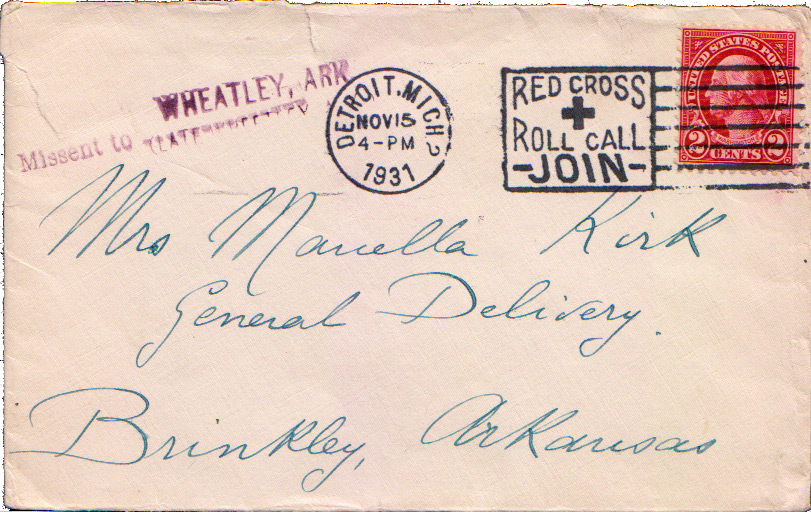 WHEATLEY, ARK
Missent to
DETROIT, MICH 2
NOV 15
4-PM
1931
RED CROSS
ROLL CALL
-JOIN-
UNITED STATES POSTAGE
2 CENTS 2
Mrs Manella Kirk
General Delivery.
Brinkley, Arkansas